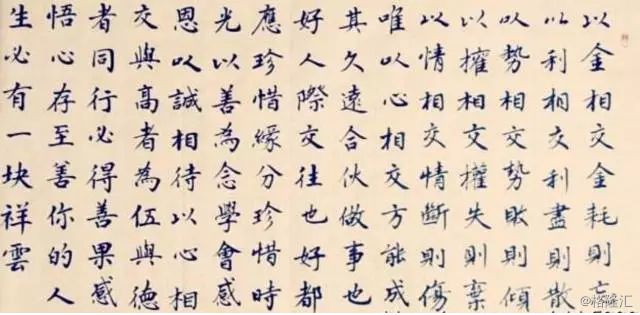 以金相交金耗則忘
以利相交利盡則散
以勢相交勢敗則傾
以權相交權失則棄
以情相交情斷則傷
唯以心相交方能成
其久遠合伙做事也
好人際交往也好都
應珍惜緣分珍惜時
光以善為念學會感
恩以誠相待以心相
交與高者為伍與德
者同行必得善果感
悟心存至善你的人
生必有一块祥雲
@格隆汇